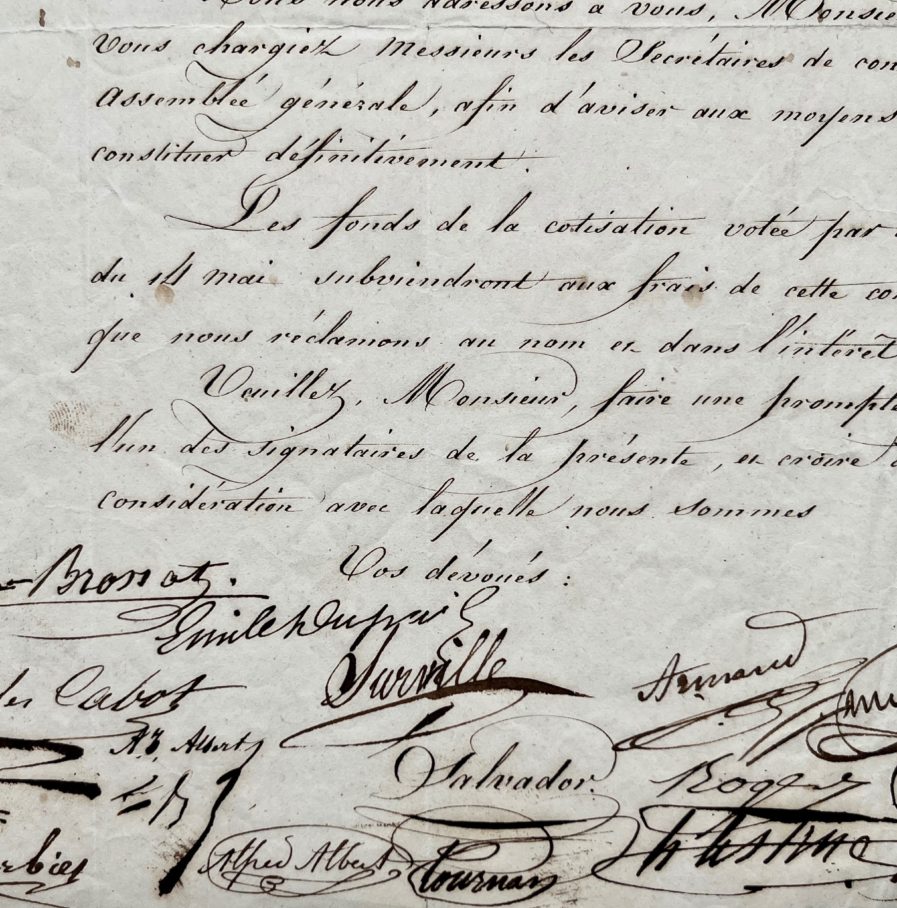 nous nous adressons à vous, Monsie
vous chargiez Messieurs les Secrétaires de con
Assemblée générale, afin d'aviser aux moyens
constituer définitivement.
Les fonds de la cotisation votée par
du 14 mai subviendront aux frais de cette co
que nous réclamons au nom et dans l'intérêt
Veuillez, Monsieur, faire une prompte
l'un des signataires de la présente, et croire
considération avec laquelle nous sommes
Vos dévoués :
Emile Dupuis
Surville
Armand
Cabot
Az. Albert
Salvador.
Roger
Alfred Albert
Tournan